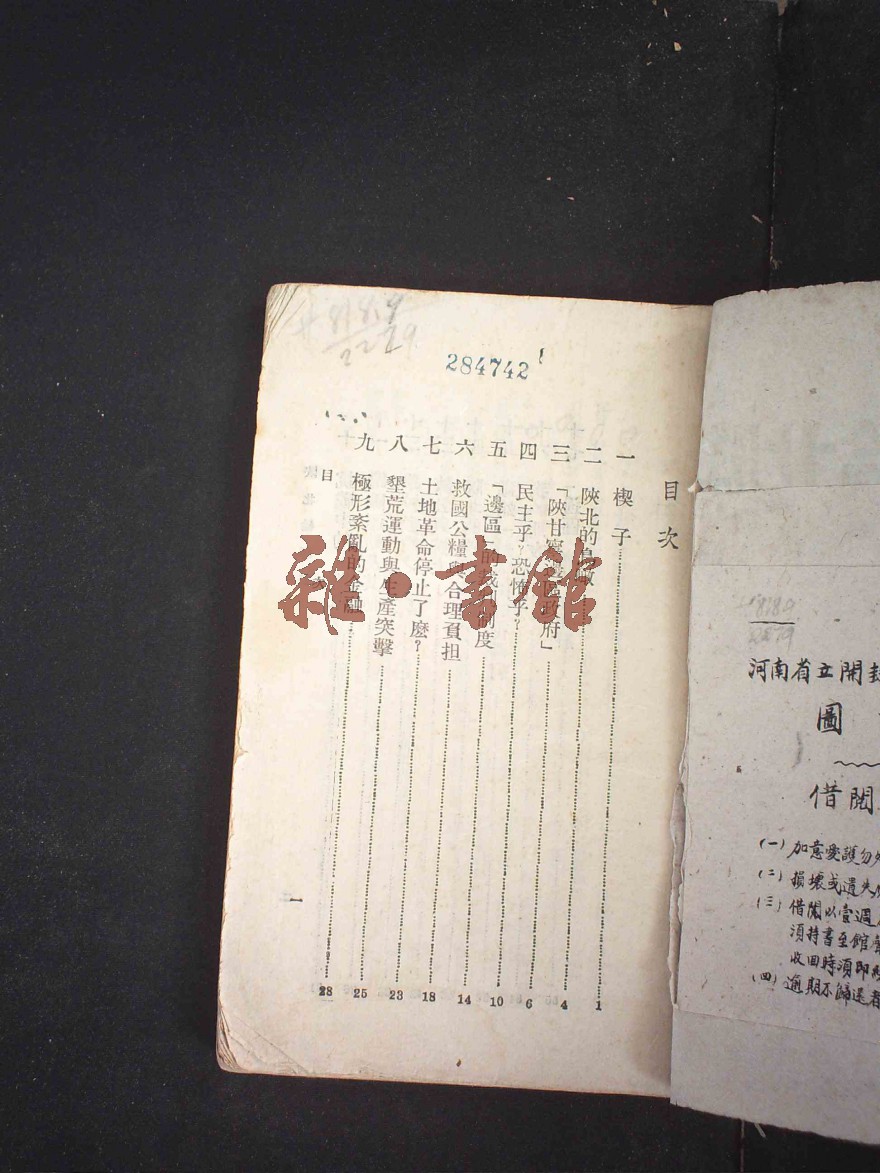 河南省立開封
圖
借閱
(一)加意愛護勿
(二)損壞或遺失
(三)借閱以壹週
須持書至館
收回時須即
(四)逾期不歸還者
284742
目次
一 楔子……1
二 陝北的……4
三 「陝甘寧邊區政府」……6
四 民主乎?恐怖乎?……10
五 「邊區」的裁判制度……14
六 救國公糧與合理負担……18
七 土地革命停止了麼?……23
八 墾荒運動與生產突擊……25
九 極形紊亂的金融……28
目
一
雜·書館